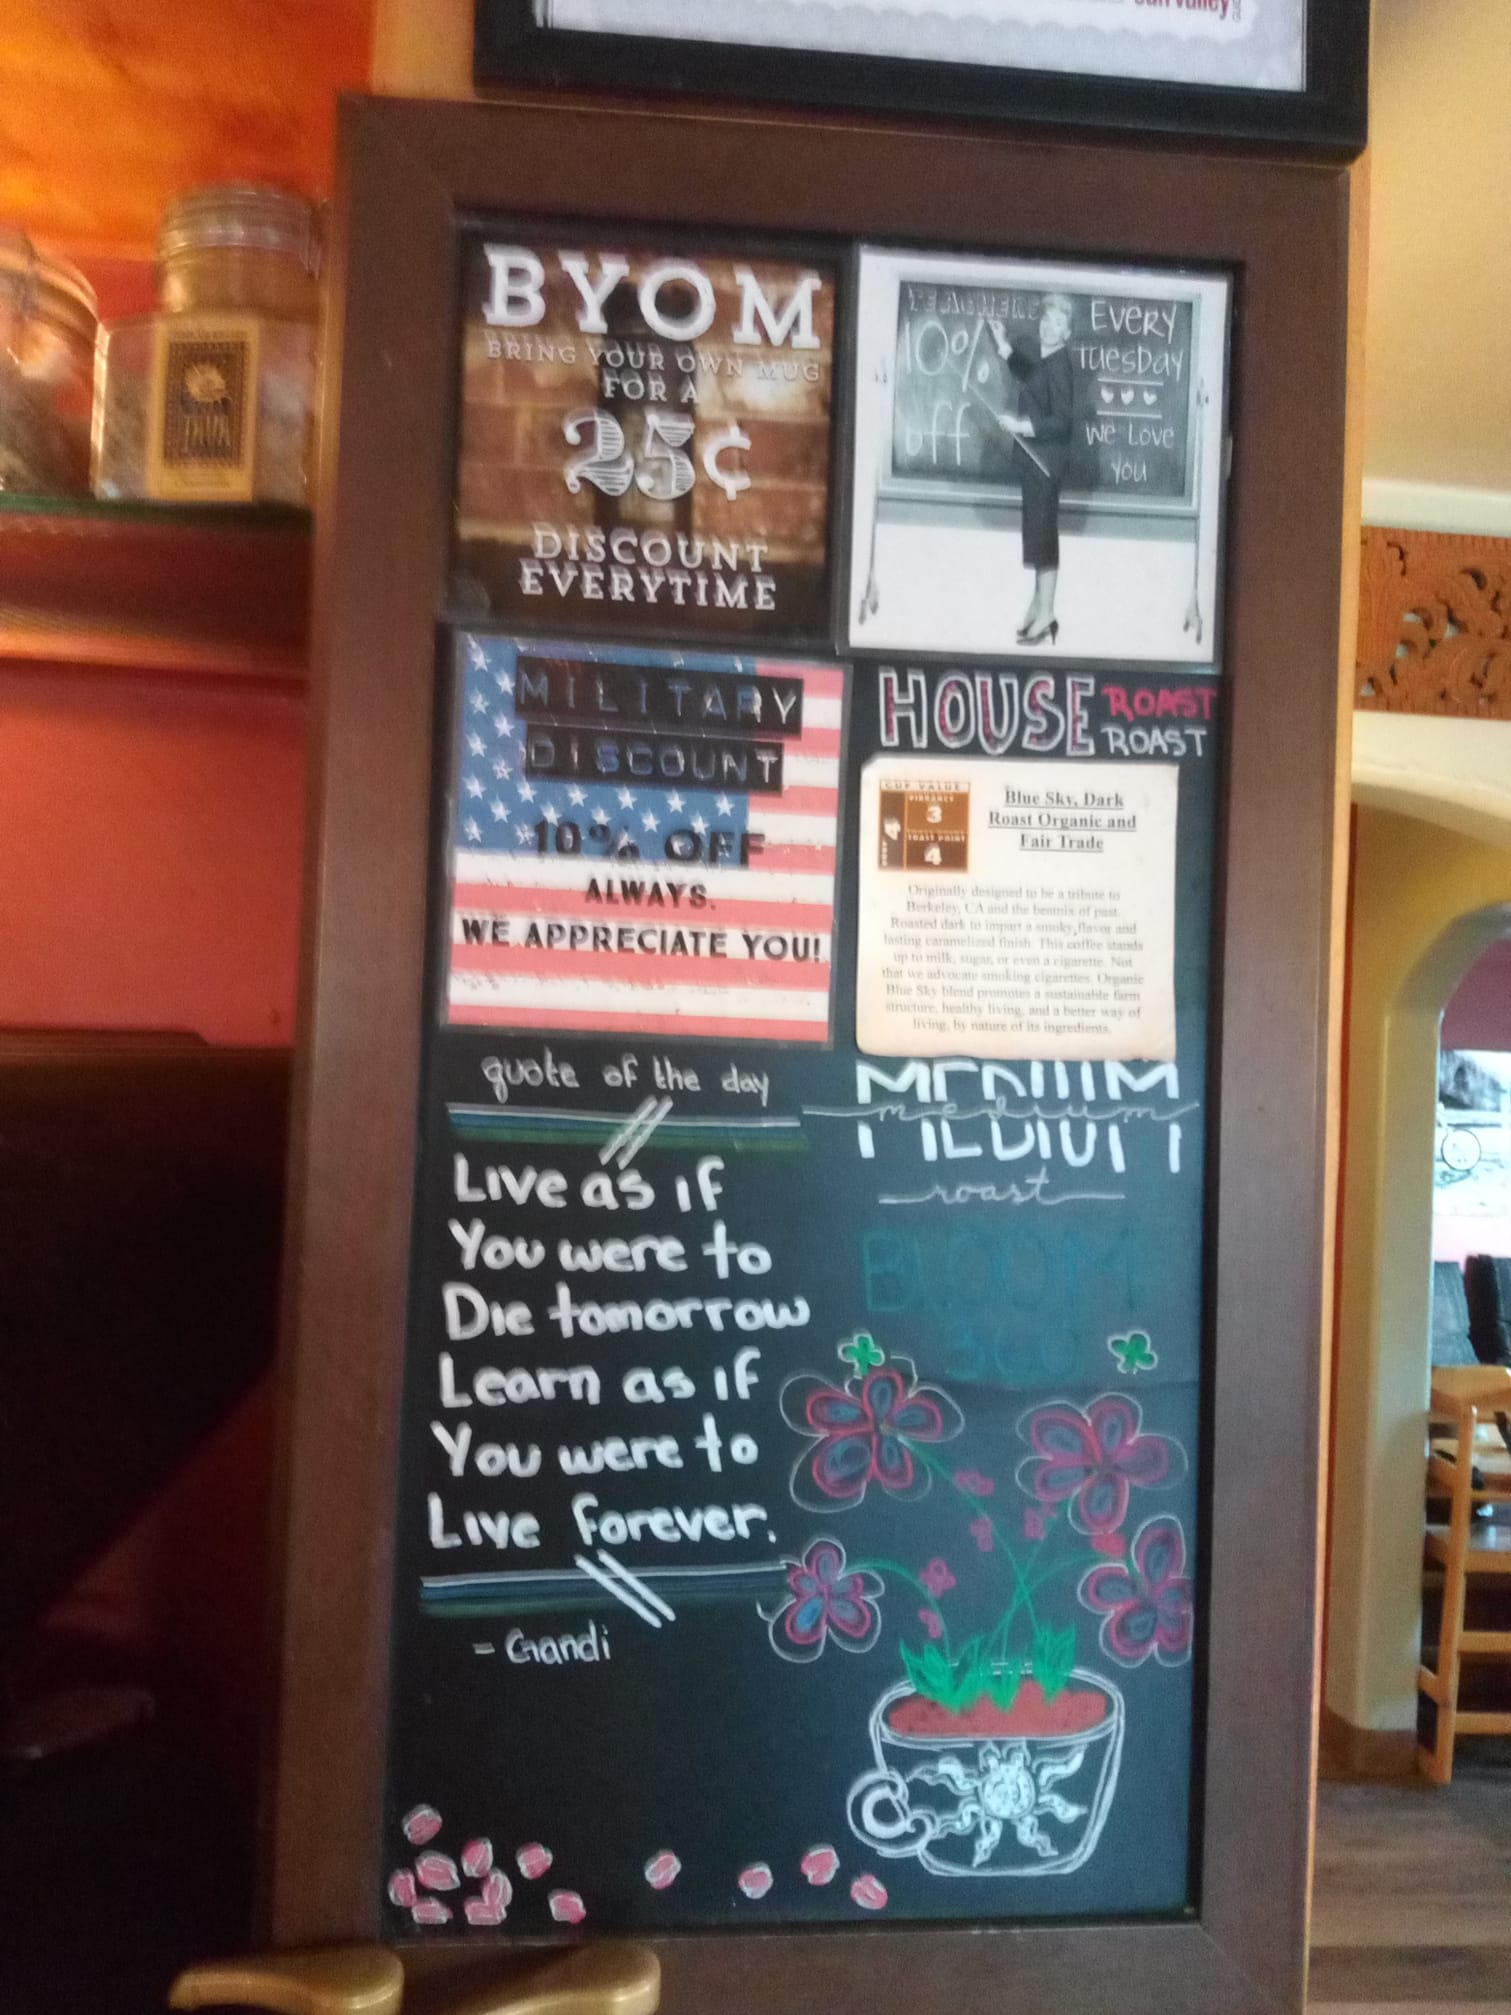 Sun Valley
BYOM
BRING YOUR OWN MUG
FOR A
25¢
DISCOUNT
EVERYTIME
TEACHERS
10%
off
EVERY
TUESDAY
WE LOVE
YOU
MILITARY
DISCOUNT
10% OFF
ALWAYS.
WE APPRECIATE YOU!
HOUSE ROAST
ROAST
CUP VALUE
VIBRANCY
3
BODY 4
ROAST POINT
4
Blue Sky, Dark
Roast Organic and
Fair Trade
Originally designed to be a tribute to
Berkeley, CA and the beatnix of past.
Roasted dark to impart a smoky flavor and
lasting caramelized finish. This coffee stands
up to milk, sugar, or even a cigarette. Not
that we advocate smoking cigarettes. Organic
Blue Sky blend promotes a sustainable farm
structure, healthy living, and a better way of
living, by nature of its ingredients.
quote of the day
Live as if
You were to
Die tomorrow
Learn as if
You were to
Live forever.
- Gandi
MEDIUM
medium
roast
BLOOM
360